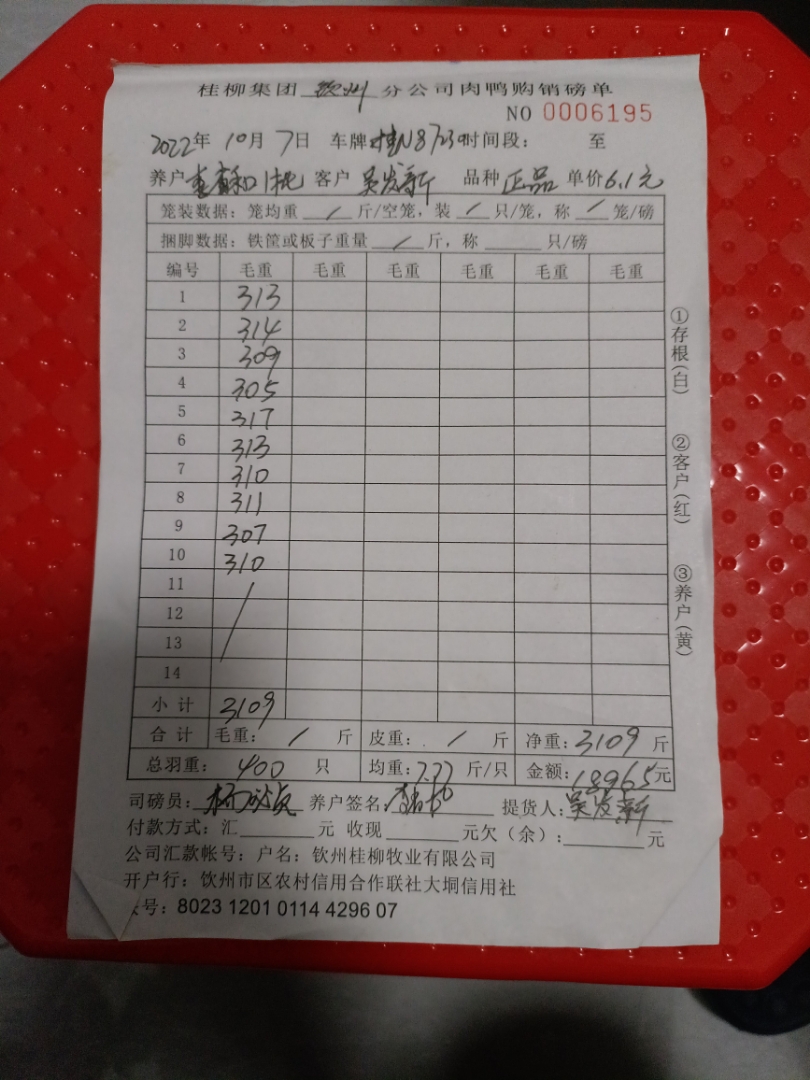 桂柳集团 钦州 分公司肉鸭购销磅单
NO 0006195
2022年 10月 7日 车牌 桂N87239 时间段: 至
养户 客户 吴发新 品种 正品 单价6.1元
笼装数据: 笼均重 / 斤/空笼, 装 / 只/笼, 称 / 笼/磅
捆脚数据: 铁筐或板子重量 / 斤, 称 只/磅
编号 毛重 毛重 毛重 毛重 毛重 毛重
1 313
2 314
3 309
4 305
5 317
6 313
7 310
8 311
9 307
10 310
11
12
13
14
小计 3109
合计 毛重: / 斤 皮重: / 斤 净重: 3109 斤
总羽重: 400 只 均重: 7.77 斤/只 金额: 18965元
司磅员: 养户签名: 提货人: 吴发新
付款方式: 汇 元 收现 元欠(余): 元
公司汇款帐号: 户名: 钦州桂柳牧业有限公司
开户行: 钦州市区农村信用合作联社大垌信用社
号: 8023 1201 0114 4296 07
①存根(白)
②客户(红)
③养户(黄)